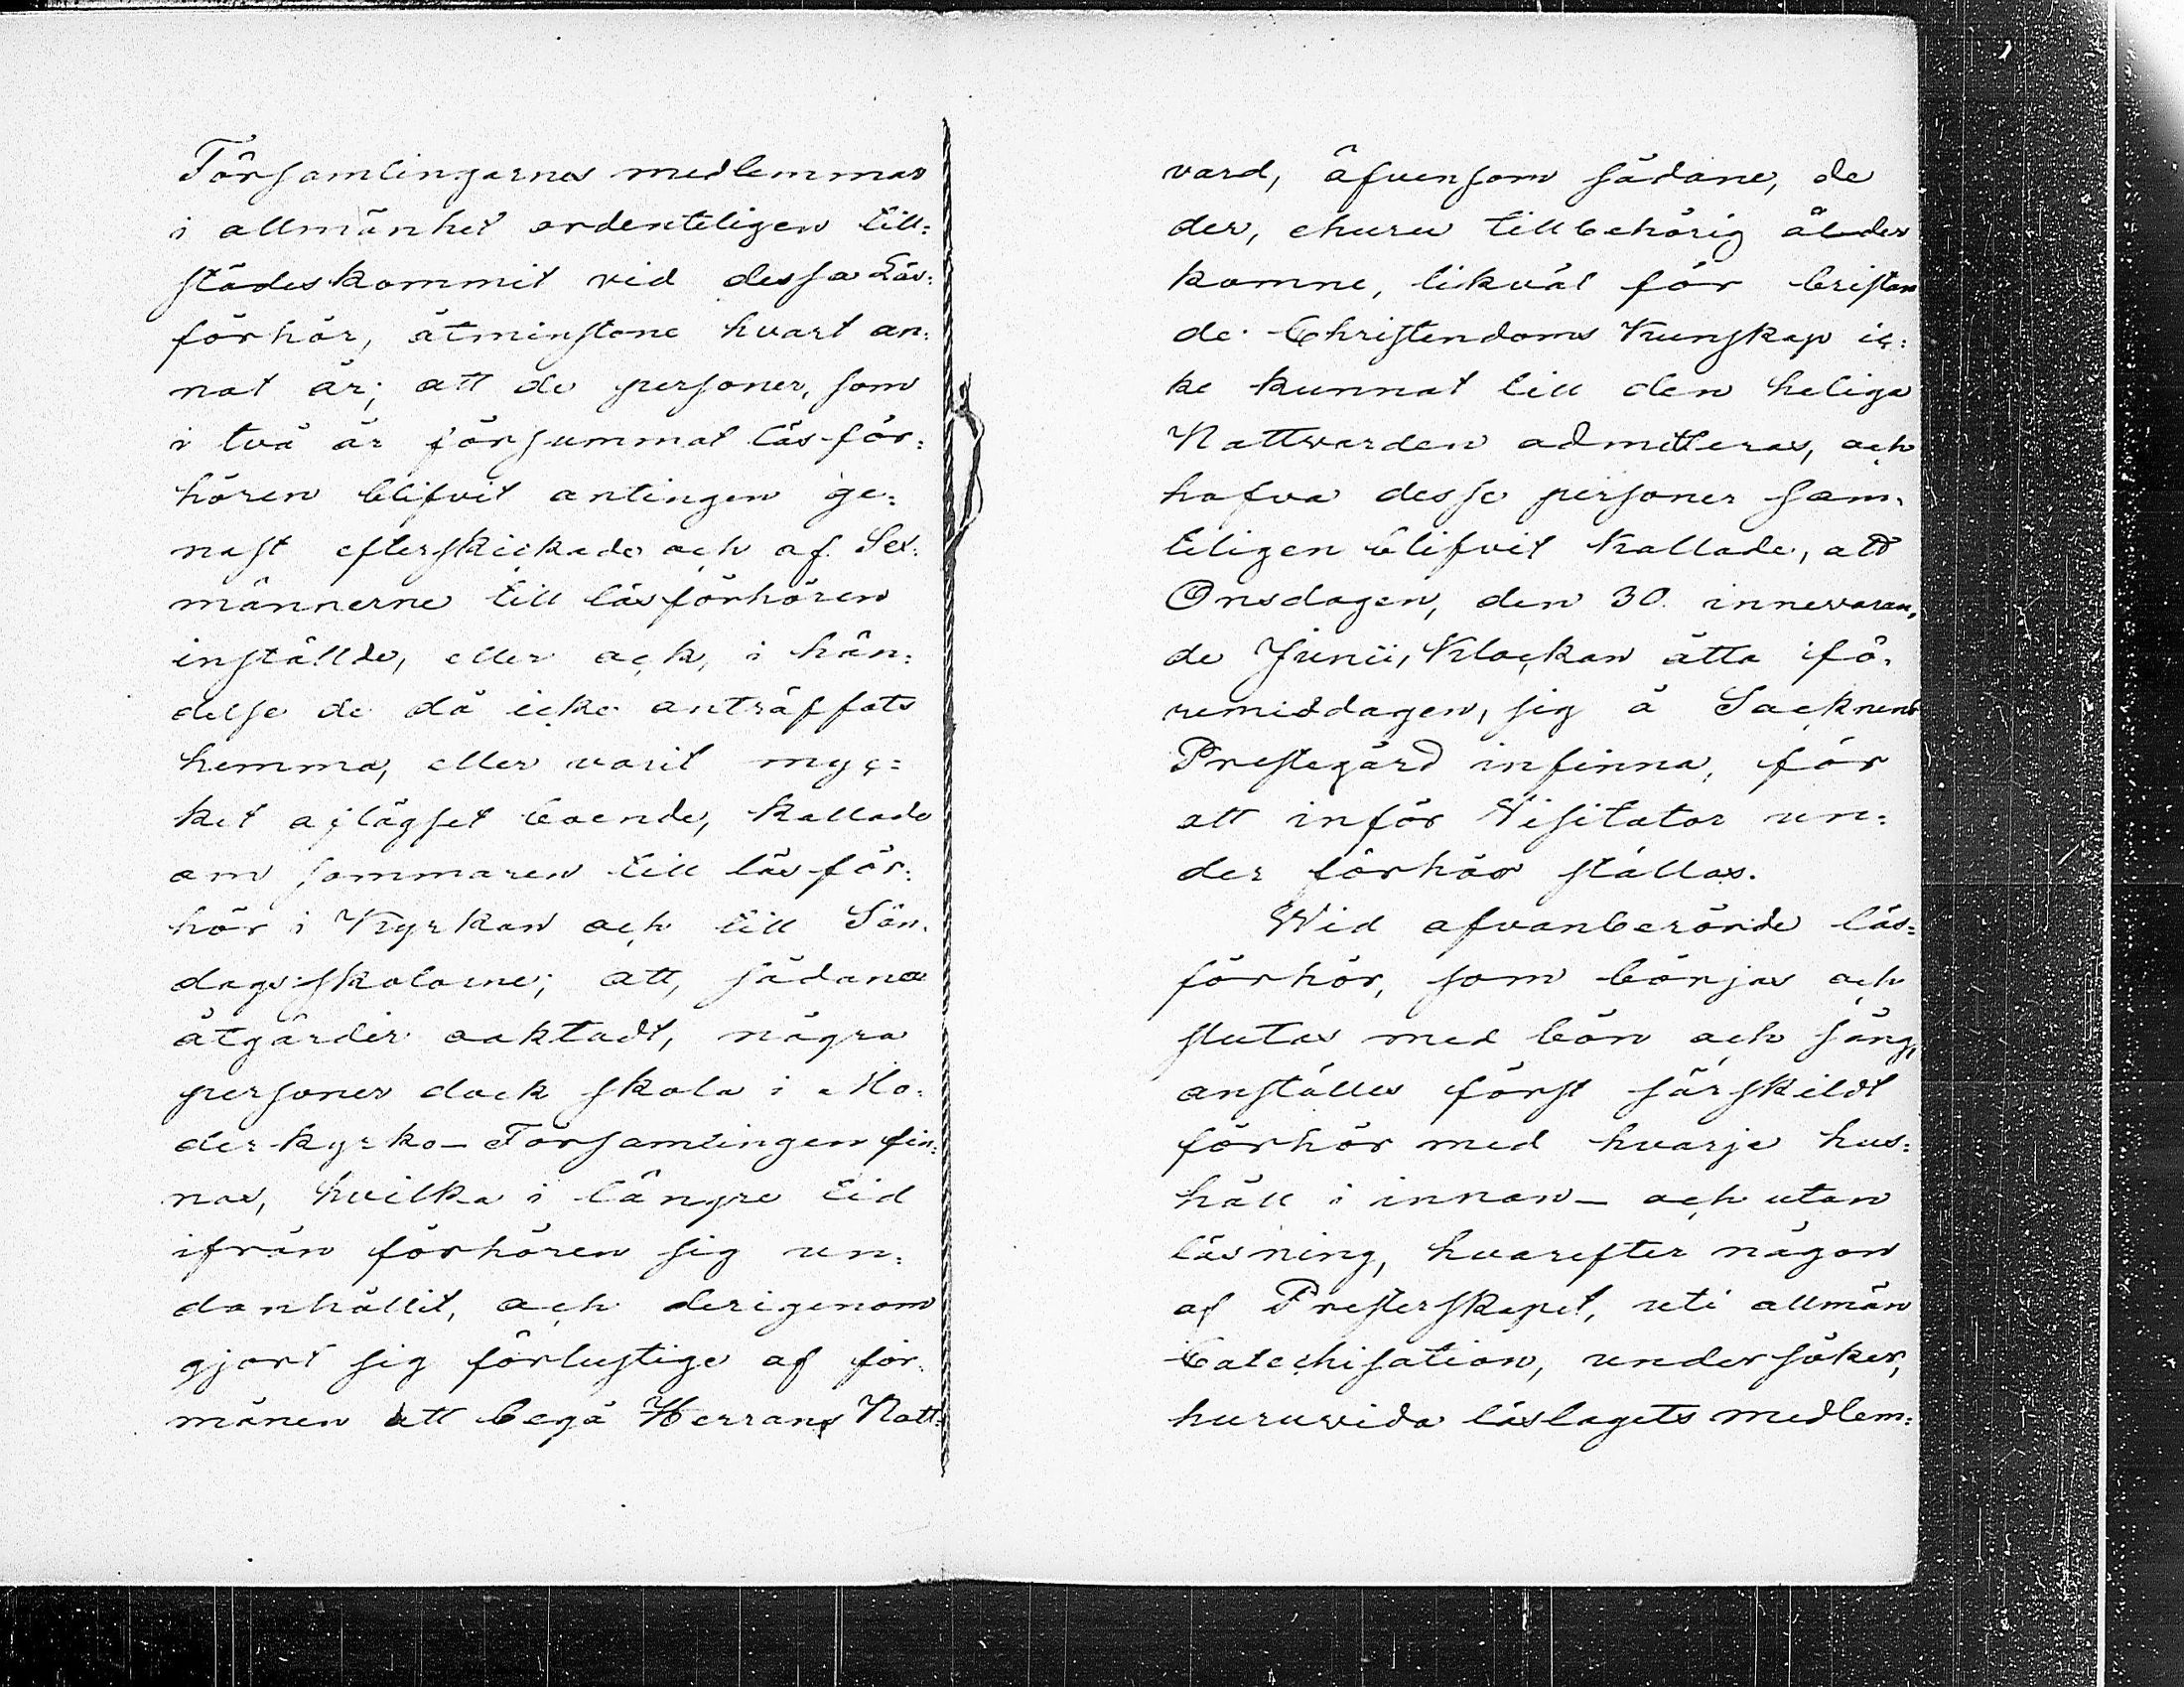 Församlingarnes medlemmar
i allmänhet ordenteligen till=
städeskommit vid dessa Läs=
förhör, åtminstone hvart an=
nat år; att de personer, som
i två år försummat läs-för=
hören blifvit antingen ge=
nast efterskickade och af Sex=
männerne till läsförhören
inställde, eller ock, i hän=
delse de då icke anträffats
hemma, eller varit myc=
ket aflägset boende, kallade
om sommaren till läsför=
hör i Kyrkan och till Sön=
dags-skolorne; att, sådana
åtgärder oaktadt, några
personer dock skola i Mo=
derkyrko-Församlingen fin=
nas, hvilka i längre tid
ifrån förhören sig un=
danhållit, och derigenom
gjort sig förlustige af för=
månen att begå Herrans Natt=
vard, äfvensom sådane, de
der, ehuru till behörig ålder
komne, likväl för bristan
de Christendoms Kunskap ic=
ke kunnat till den heliga
Nattvarden admitteras, och
hafva desse personer sam=
teligen blifvit kallade, att
Onsdagen, den 30. innevaran=
de Junii, Klockan åtta i fö=
remiddagen, sig å Socknens
Prestegård infinna, för
att inför Visitator un=
der förhör ställas.
Wid ofvanberörde läs=
förhör, som börjas och
slutas med bön och sång,
anställes först särskildt
förhör med hvarje hus=
håll i innan- och utan
läsning, hvarefter någon
af Presterskapet, uti allmän
Catechisation, undersöker,
huruvida läslagets medlem=